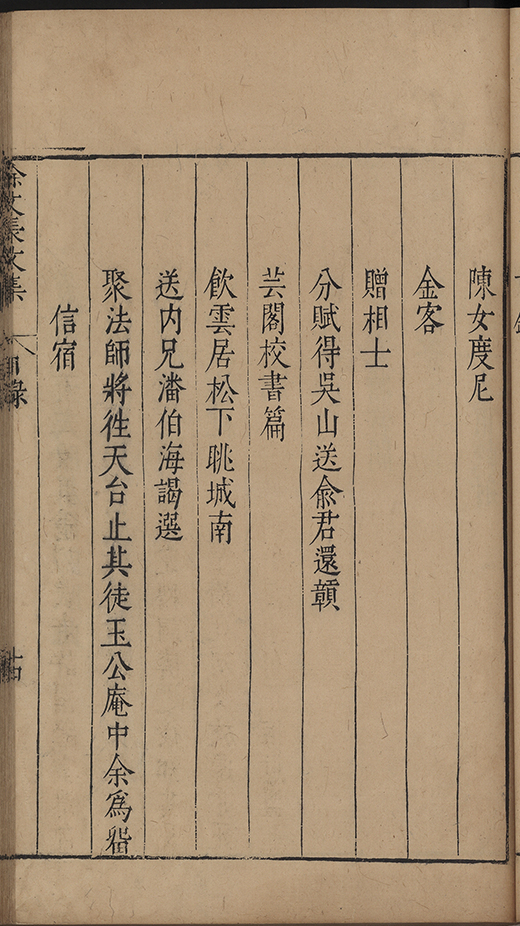 陳女度尼
金客
贈相士
分賦得吳山送俞君還贛
芸閣校書篇
飲雲居松下眺城南
送内兄潘伯海謁選
聚法師將徃天台止其徒玉公庵中余為畱
信宿
徐文長文集
目錄